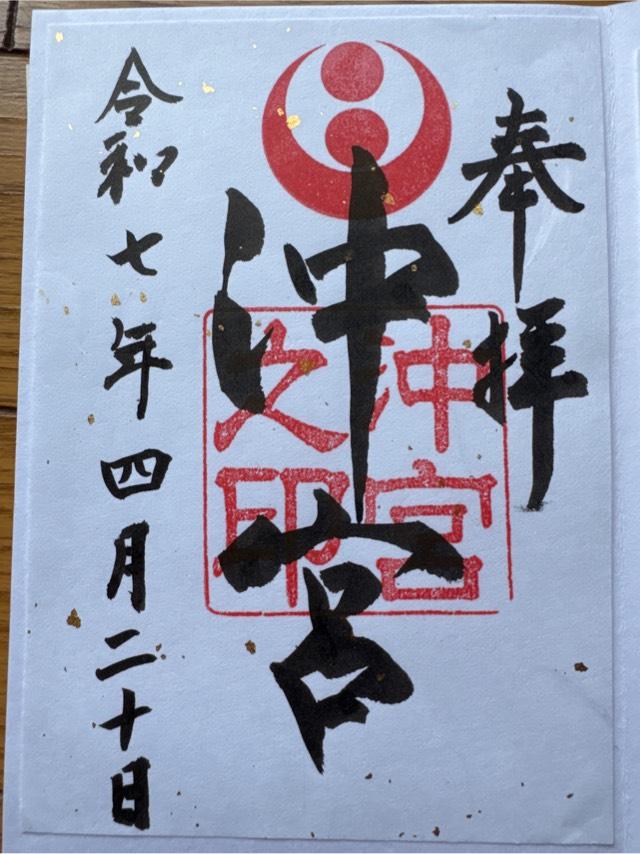 奉拝
沖宮
沖宮
之印
令和七年四月二十日